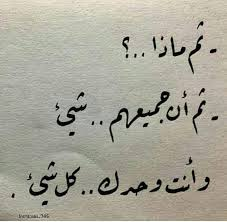 - ثم ماذا ..؟
- ثم أن جميعهم .. شيئ
وأنت وحدك .. كل شيئ .